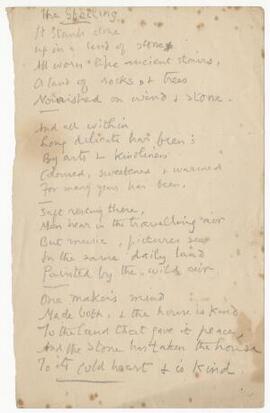 The Shieling
It stands alone
Up in a land of stone
All worn like ancient stairs,
A land of rocks & trees
Nourished on wind & stone.
And all within
Long delicate has been;
By arts & kindliness
Coloured, sweetened & warmed
For many years has been.
Safe resting there,
Men hear in the travelling air
But music, pictures see
In the same daily land
Painted by the wild air.
One maker's mind
Made both, & the house is kind
To the land that gave it peace,
And the stone has taken the house
To its cold heart & is kind.